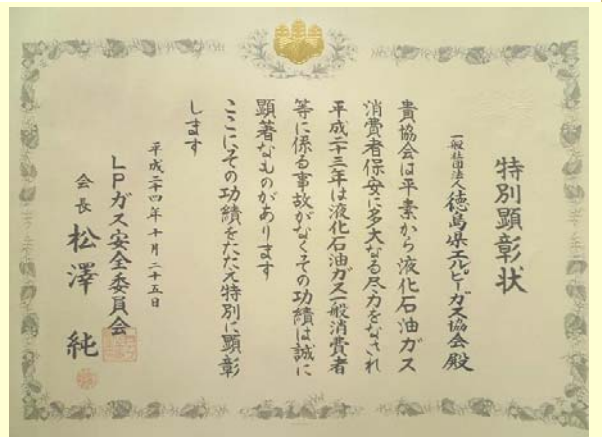 特別顕彰状
一般社団法人徳島県エルピーガス協会 殿
貴協会は平素から液化石油ガス
消費者保安に多大なる尽力をなされ
平成二十三年は液化石油ガス一般消費者
等に係る事故がなくその功績は誠に
顕著なものがあります
ここにその功績をたたえ特別に顕彰
します
平成二十四年十月二十五日
LPガス安全委員会
会長 松澤 純